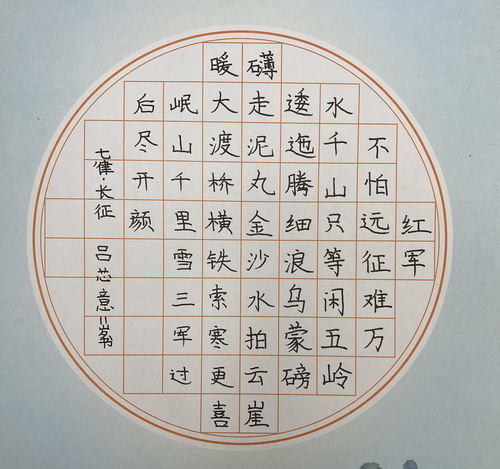 红军
不怕远征难万
水千山只等闲五岭
逶迤腾细浪乌蒙磅
礴走泥丸金沙水拍云崖
暖大渡桥横铁索寒更喜
岷山千里雪三军过
后尽开颜
七律·长征 吕芯意